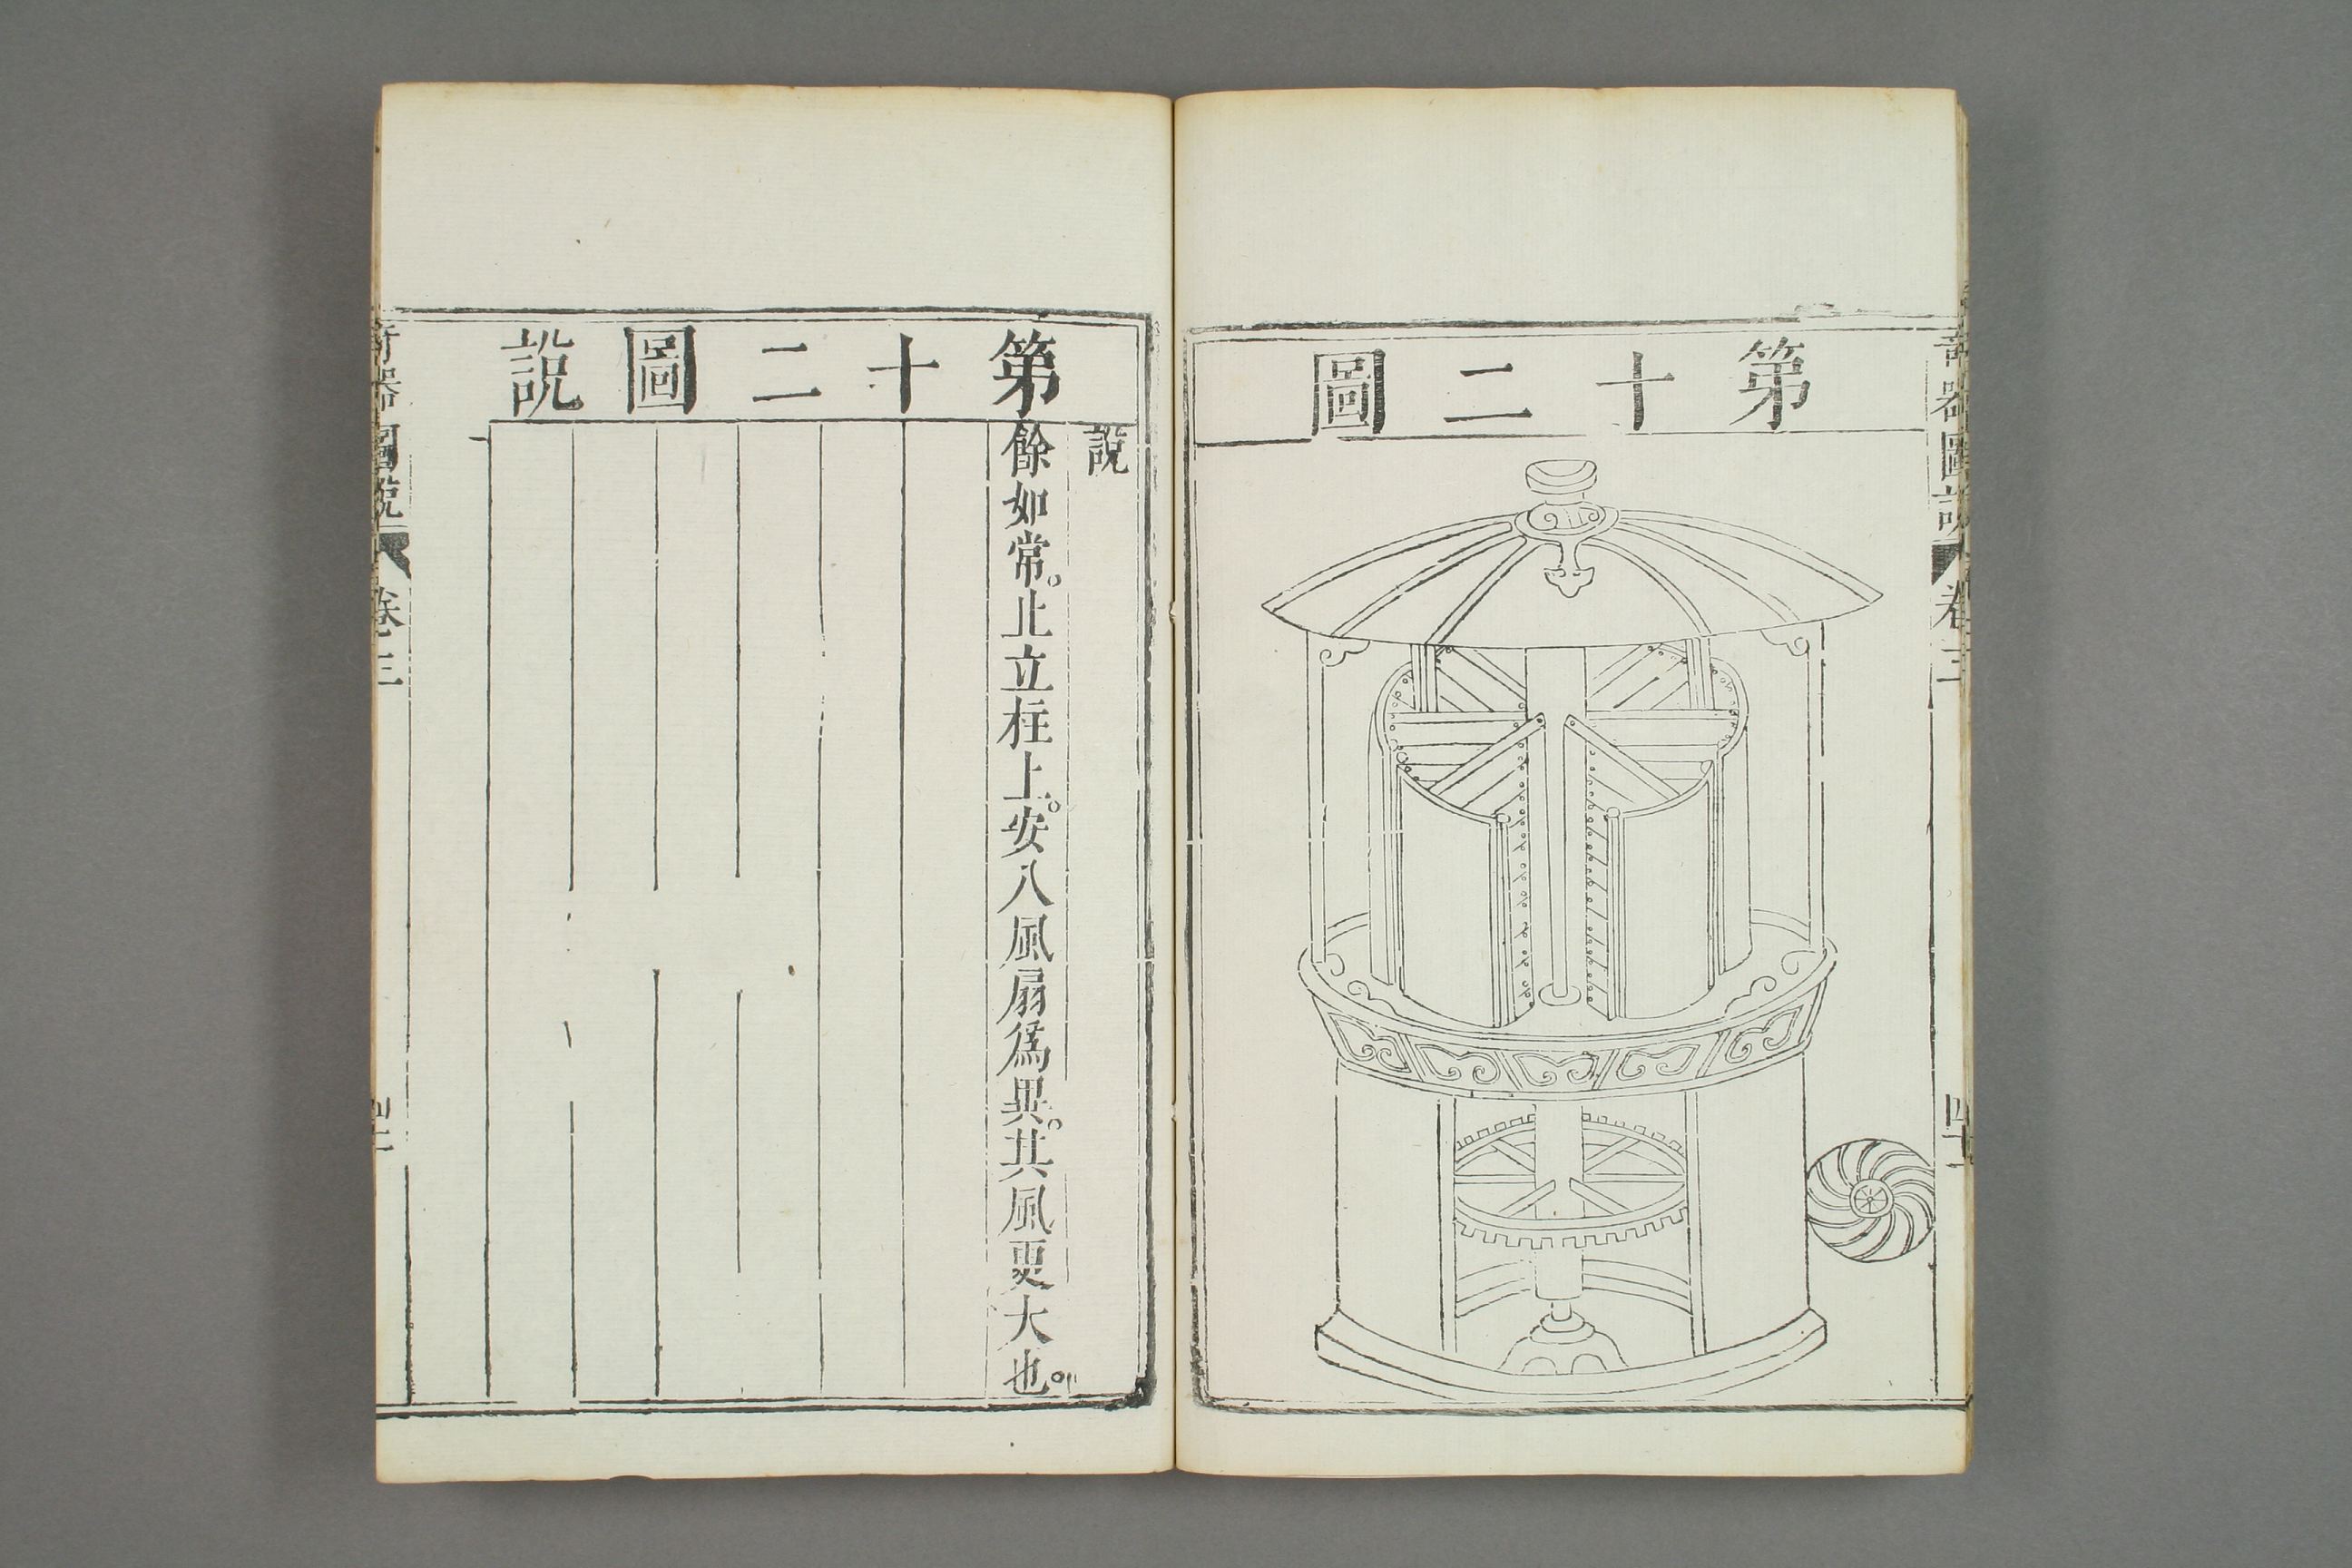 奇器圖說 卷三 四十一
第十二圖
第十二圖說
說
餘如常。止立柱上。安八風扇爲異。其風更大也。
奇器圖說 卷三